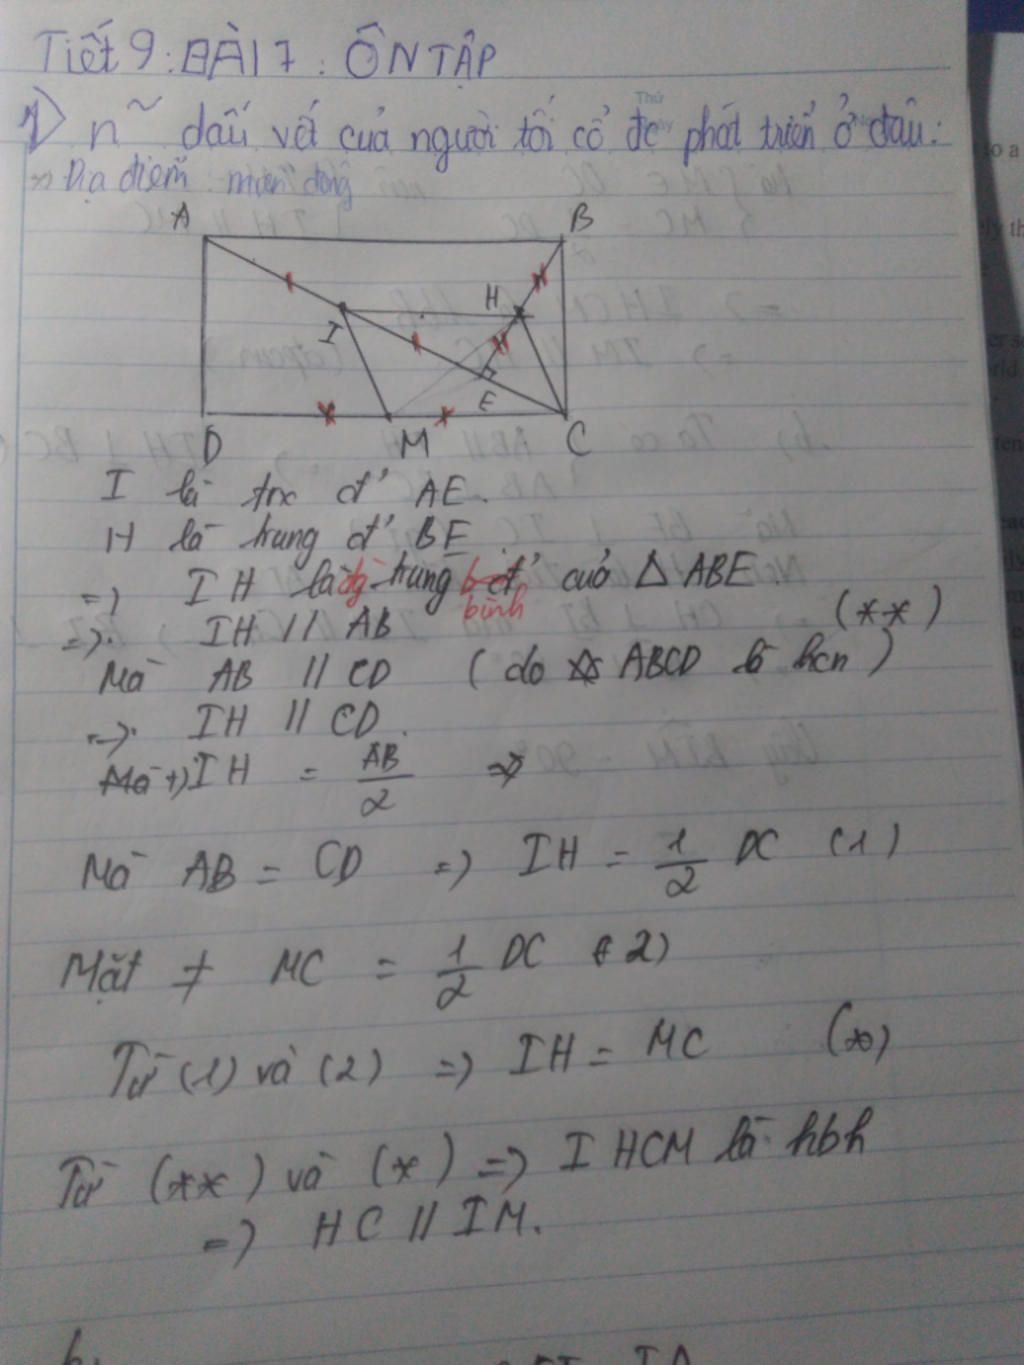 Tiết 9: BÀI 7: ÔN TẬP
1) n~ dấu vết của người tối cổ đc phát triển ở đâu:
Địa điểm:
A B
I H
E
D M C
I là đ' AE.
H là trung đ' BE.
=> IH là đg trung bình của Δ ABE.
=> IH // AB (**)
Mà AB // CD (do ABCD là hcn)
=> IH // CD.
+) IH = AB/2 =>
Mà AB = CD => IH = 1/2 DC (1)
Mặt ≠ MC = 1/2 DC (2)
Từ (1) và (2) => IH = MC (*)
Từ (**) và (*) => IHCM là hbh
=> HC // IM.